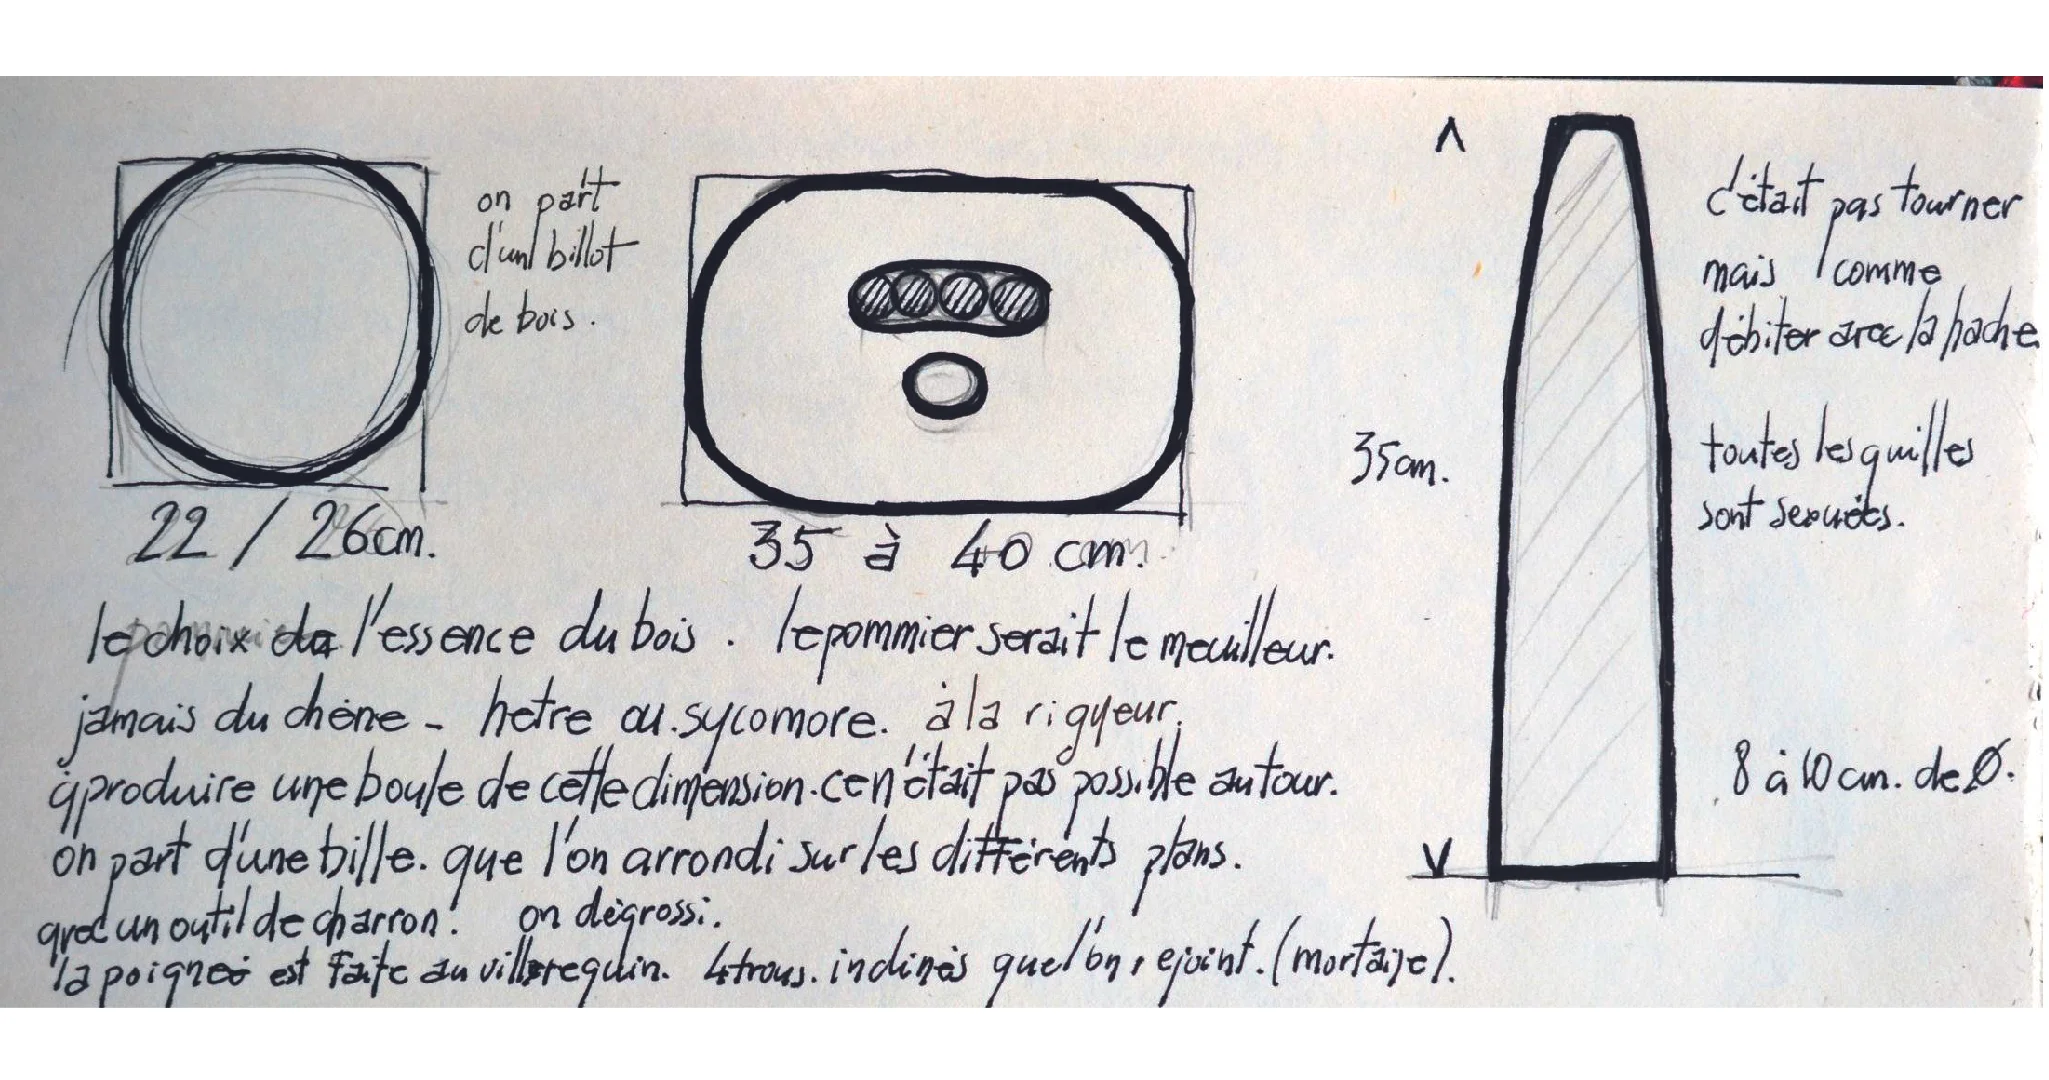 on part
d'un billot
de bois.
22 / 26cm.
35 à 40 cm.
35cm.
c'était pas tourner
mais comme
débiter avec la hache
toutes les quilles
sont sexuées.
8 à 10 cm. de Ø.
le choix de l'essence du bois. le pommier serait le meuilleur.
jamais du chêne - hetre ou sycomore. à la rigueur.
produire une boule de cette dimension. ce n'était pas possible au tour.
on part d'une bille. que l'on arrondi sur les différents plans.
avec un outil de charron. on dégrossi.
la poigneé est faite au villerequin. 4 trous. inclinés que l'on rejoint. (mortaise).